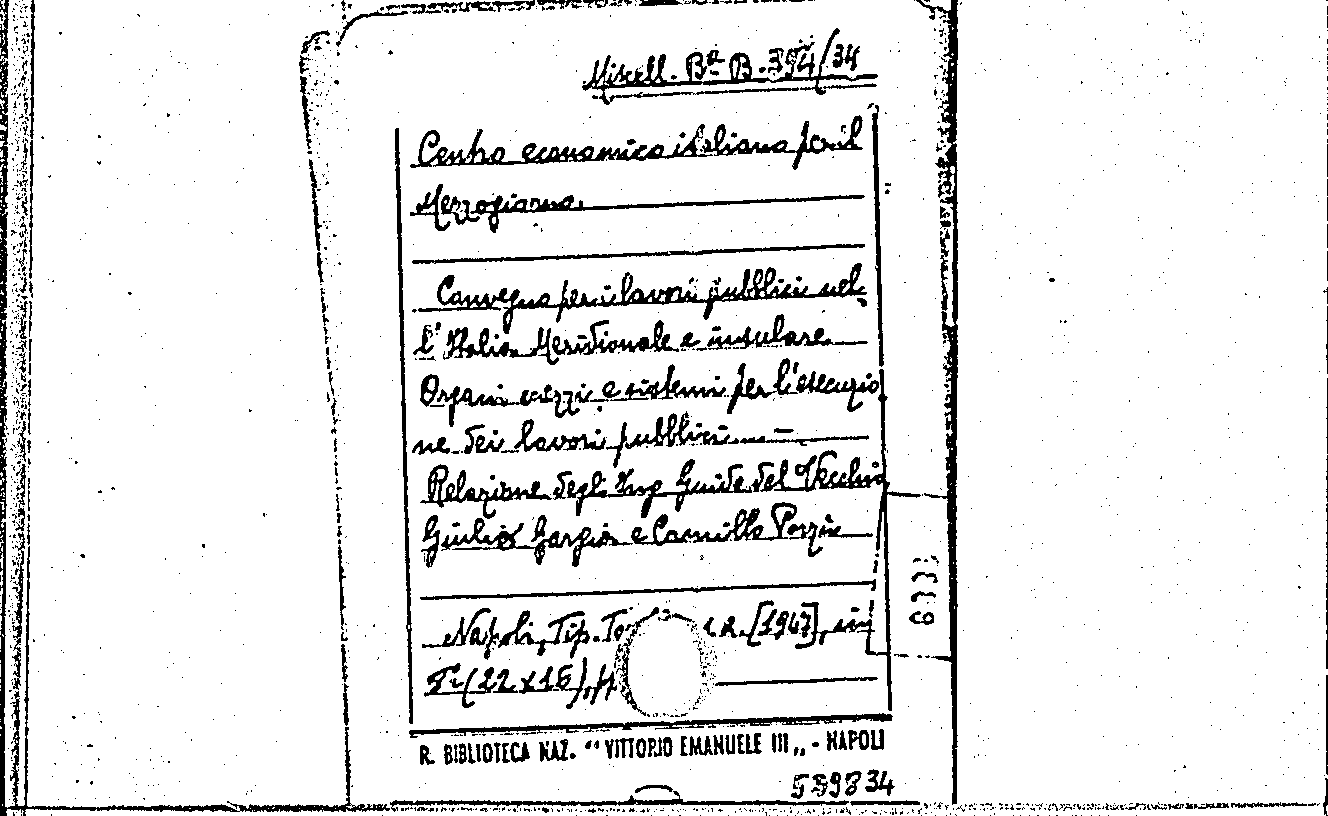 Miscell. Bª B. 394/34
Centro economico italiano per il
Mezzogiorno.
Convegno per i lavori pubblici nel
l'Italia Meridionale e insulare
Organi mezzi e sistemi per l'esecuzio
ne dei lavori pubblici. —
Relazione degli Ing Guido del Vecchio
Giulio Gargia e Camillo Porzio
Napoli, Tip. [1947], in
8° (22 x 16),
R. BIBLIOTECA NAZ. “ VITTORIO EMANUELE III „ - NAPOLI
559834